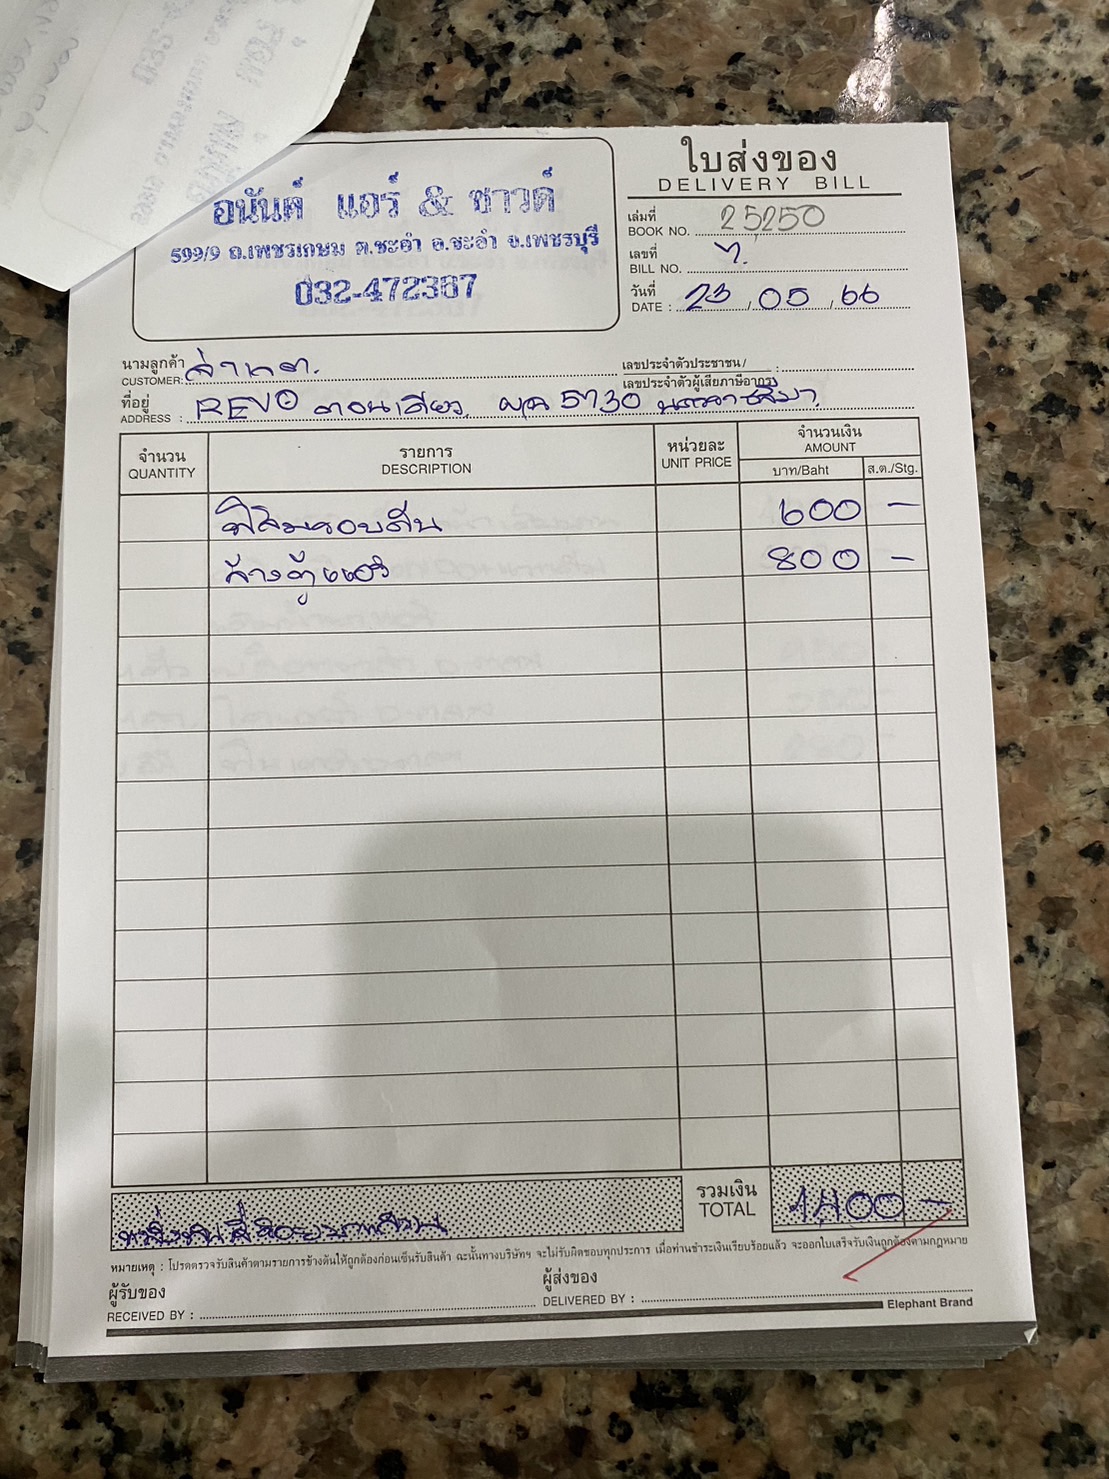 ใบส่งของ
DELIVERY BILL
อนันต์ แอร์ & ซาวด์
599/9 ถ.เพชรเกษม ต.ชะอำ อ.ชะอำ จ.เพชรบุรี
032-472387
เล่มที่
BOOK NO. 25250
เลขที่
BILL NO. 7.
วันที่
DATE : 23 / 05 / 66
นามลูกค้า
CUSTOMER:
เลขประจำตัวประชาชน/
เลขประจำตัวผู้เสียภาษีอากร :
ที่อยู่
ADDRESS : REVO ตอนเดียว 5730 นครราชสีมา
จำนวน รายการ หน่วยละ จำนวนเงิน
QUANTITY DESCRIPTION UNIT PRICE AMOUNT
บาท/Baht ส.ต./Stg.
ฟิล์มรอบคัน 600 -
ล้างตู้แอร์ 800 -
รวมเงิน
TOTAL 1,400 -
หนึ่งพันสี่ร้อยบาทถ้วน
หมายเหตุ : โปรดตรวจรับสินค้าตามรายการข้างต้นให้ถูกต้องก่อนเซ็นรับสินค้า ฉะนั้นทางบริษัทฯ จะไม่รับผิดชอบทุกประการ เมื่อท่านชำระเงินเรียบร้อยแล้ว จะออกใบเสร็จรับเงินถูกต้องตามกฎหมาย
ผู้รับของ ผู้ส่งของ
RECEIVED BY : DELIVERED BY :
Elephant Brand